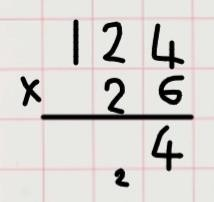 124
x 26
4
2